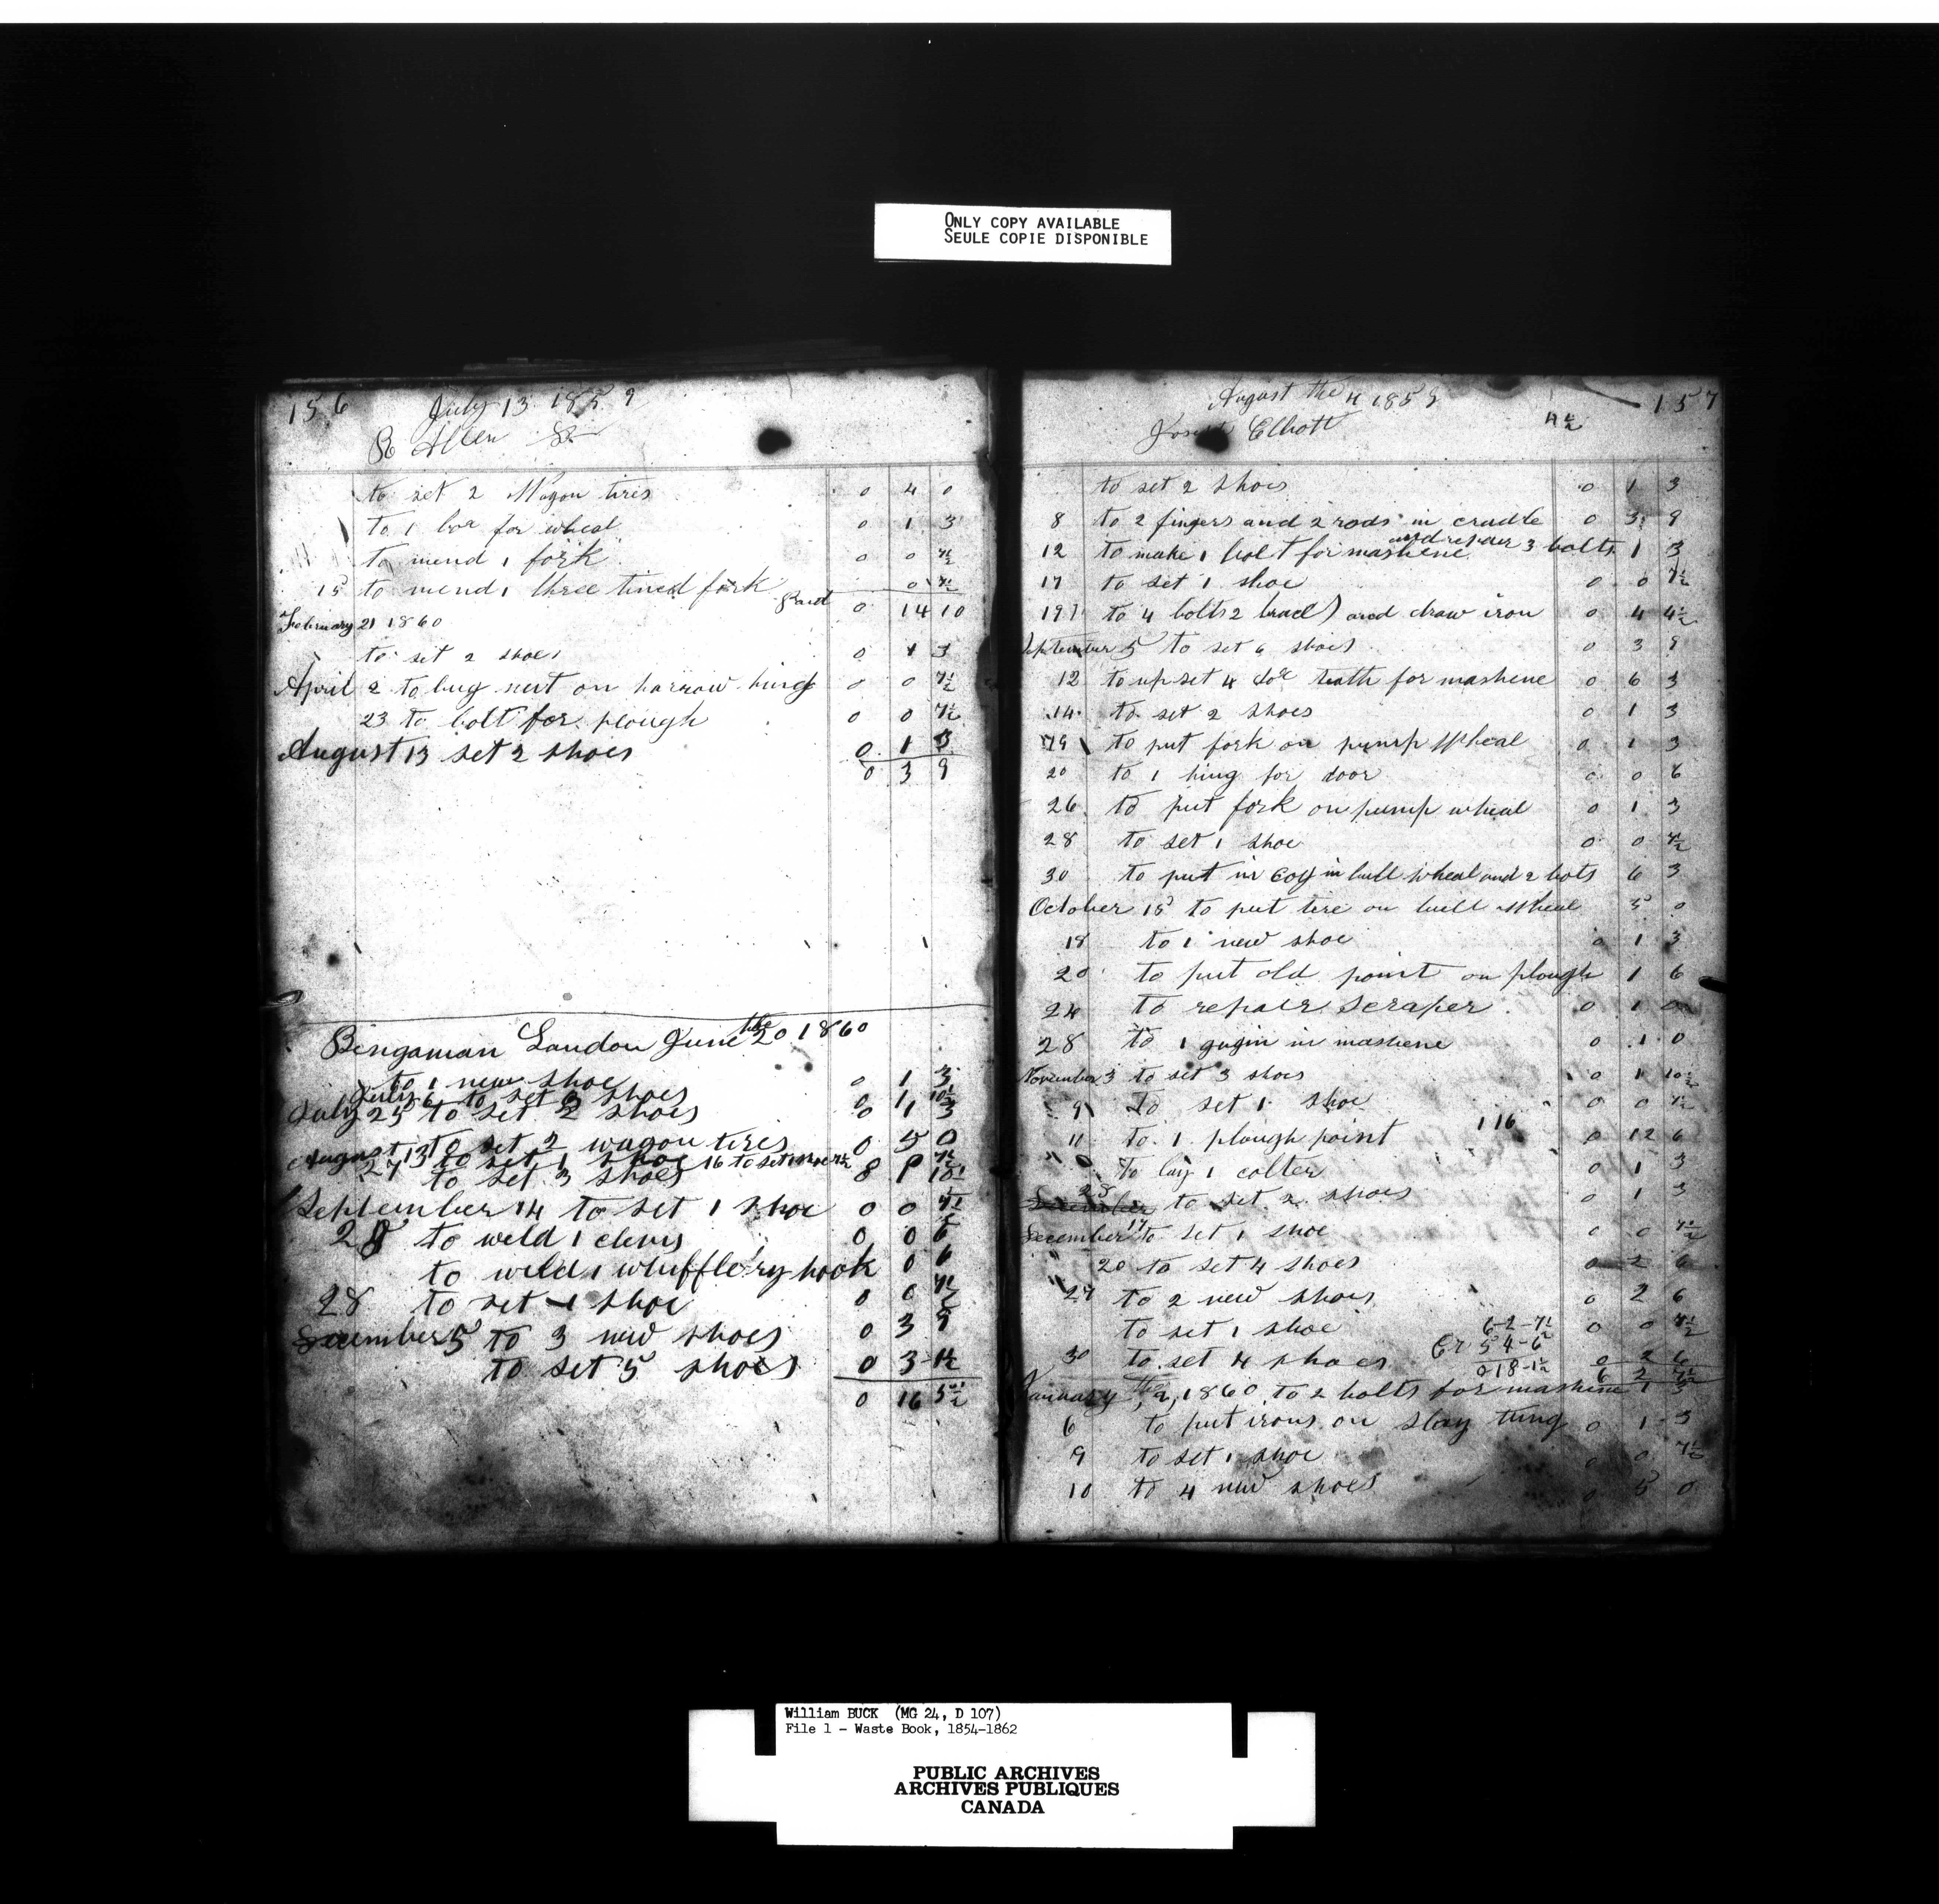 ONLY COPY AVAILABLE
SEULE COPIE DISPONIBLE
156 July 13 1859
R Allen
to set 2 Wagon tires 0 4 0
to 1 for wheal 0 1 3
to mend 1 fork 0 0 7½
15 to mend 1 three tined fork 0 7½
Paid 0 14 10
February 21 1860
to set 2 shoes 0 1 3
April 2 to nut on harrow hing 0 0 7½
23 to bolt for plough 0 0 7½
August 13 set 2 shoes 0 1 3
0 3 9
Bingaman Landon June the 20 1860
to 1 new shoe 0 1 3
July 6 to set 3 shoes 0 1 10½
July 25 to set 2 shoes 0 1 3
August 13 to set 2 wagon tires 0 5 0
to set 1 shoe 16 to set 1 shoe 7½
27 to set 3 shoes 1 10½
September 14 to set 1 shoe 0 0 7½
28 to weld 1 clevis 0 0 6
to weld 1 whifflery hook 0 6
28 to set 1 shoe 0 0 7½
December 5 to 3 new shoes 0 3 9
to set 5 shoes 0 3 1½
0 16 5½
August the 4 1859 157
Elliott 4½
to set 2 shoes 0 1 3
8 to 2 fingers and 2 rods in cradle 0 3 9
12 to make 1 bolt for mashene and repair 3 bolts 1 3
17 to set 1 shoe 0 0 7½
19 to 4 bolts 2 and draw iron 0 4 4½
September 5 to set 6 shoes 0 3 9
12 to upset 4 teath for mashene 0 6 3
14 to set 2 shoes 0 1 3
19 to put fork on pump Wheal 0 1 3
20 to 1 hing for door 0 0 6
26 to put fork on pump wheal 0 1 3
28 to set 1 shoe 0 0 7½
30 to put in cog in bull wheal and 2 bots 6 3
October 15 to put tire on bull Wheal 5 0
18 to 1 new shoe 0 1 3
20 to put old point on plough 1 6
24 to repair scraper 0 1 0
28 to 1 gugin in mashene 0 1 0
November 3 to set 3 shoes 0 1 10½
9 to set 1 shoe 0 0 7½
11 to 1 plough point 116 0 12 6
to lay 1 colter 0 1 3
28 to set 2 shoes 0 1 3
December 17 to set 1 shoe 0 0 7½
20 to set 4 shoes 0 2 6
27 to 2 new shoes 0 2 6
to set 1 shoe 6-2-7½ 0 0 7½
30 to set 4 shoes Cr 5 4-6 0 2 6
0 18-1½ 6 2 7½
January the 2, 1860 to 2 bolts for mashene 1 3
6 to put irons on slay tung 0 1 3
9 to set 1 shoe 0 0 7½
10 to 4 new shoes 0 5 0
William BUCK (MG 24, D 107)
File 1 - Waste Book, 1854-1862
PUBLIC ARCHIVES
ARCHIVES PUBLIQUES
CANADA